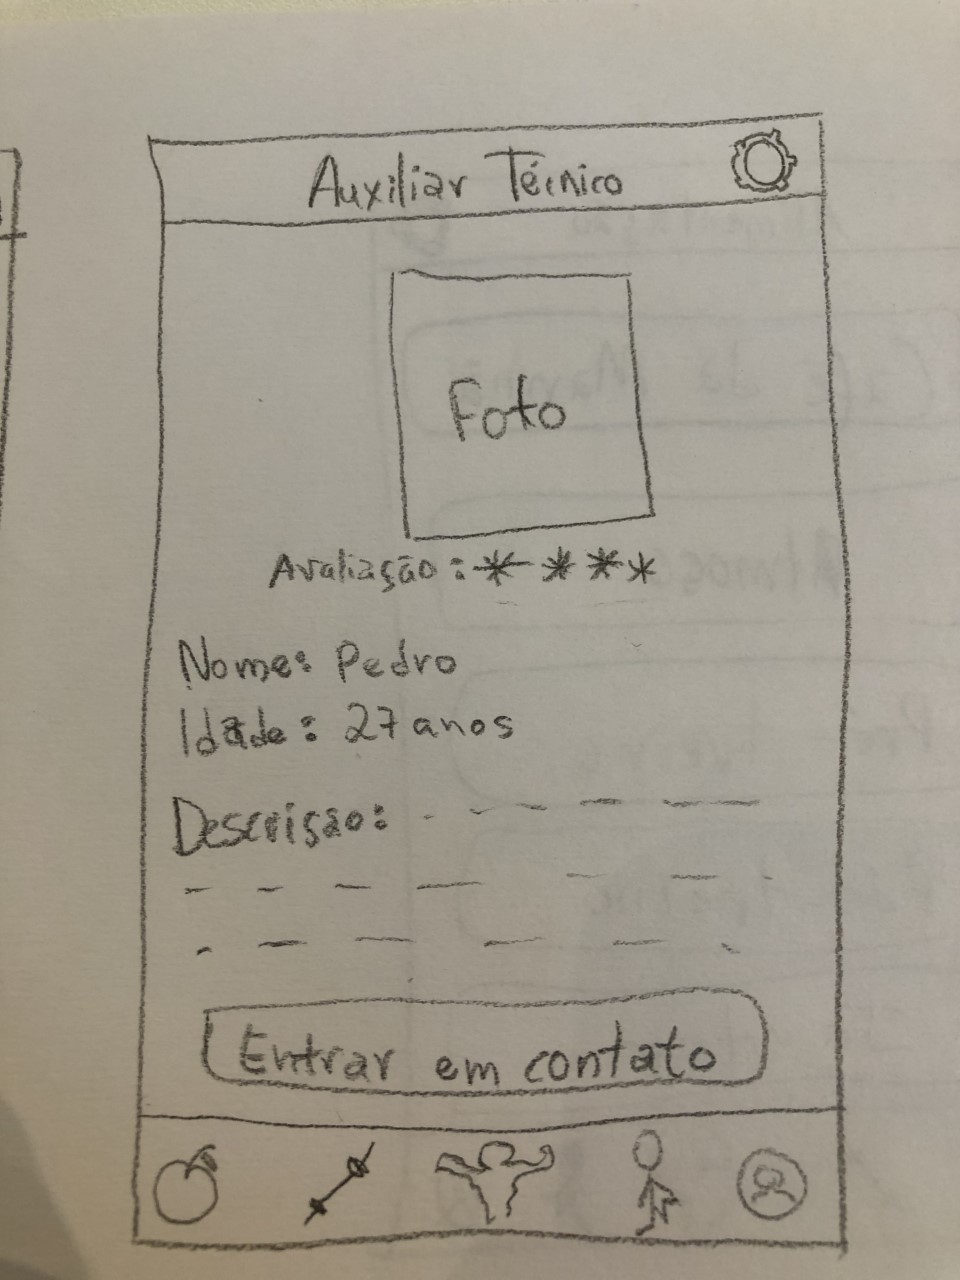 Auxiliar Técnico
Foto
Avaliação: ****
Nome: Pedro
Idade: 27 anos
Descrição:
Entrar em contato